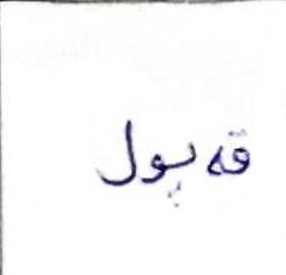 قەپول